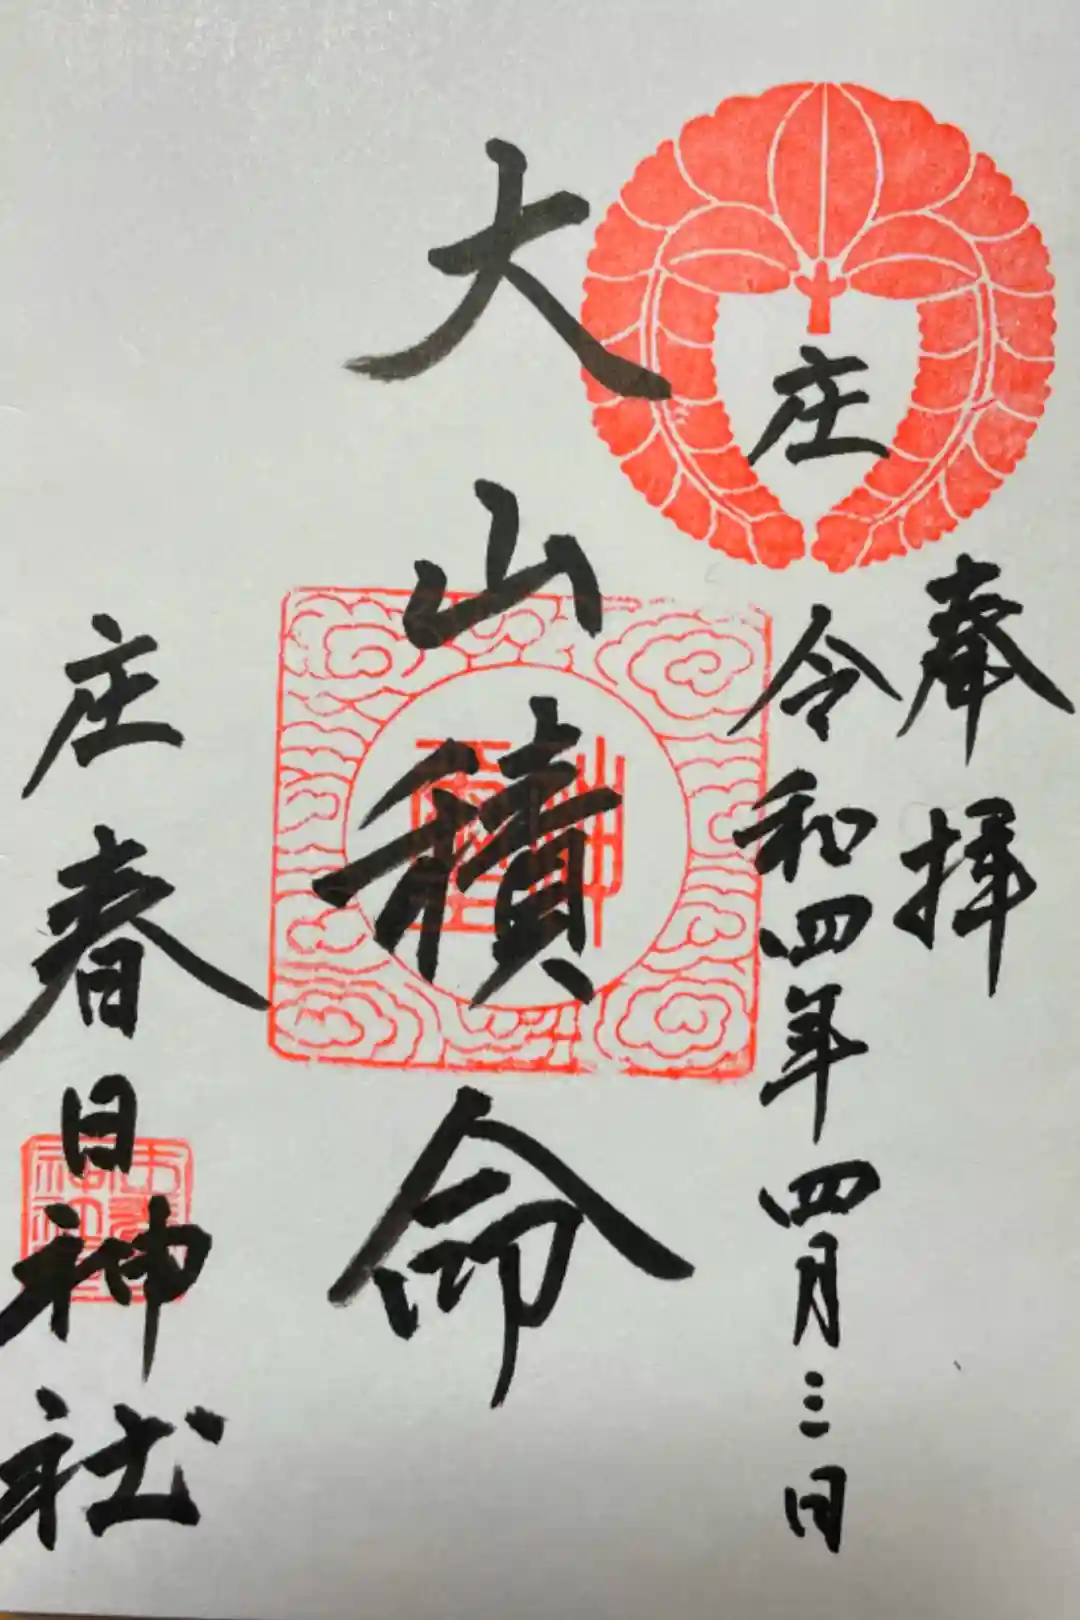 奉拝
令和四年四月三日
庄
大山積命
神霊
庄春日神社